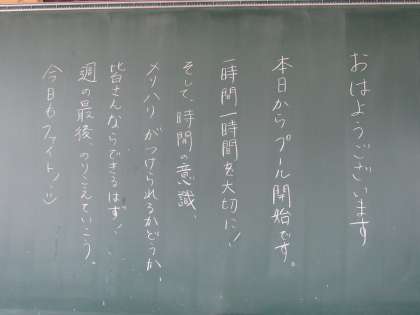 おはようございます
本日からプール開始です。
一時間一時間を大切に!
そして、時間の意識、
メリハリがつけられるかどうか、
皆さんならできるはず!
週の最後、のりこえていこう。
今日もファイト!:)